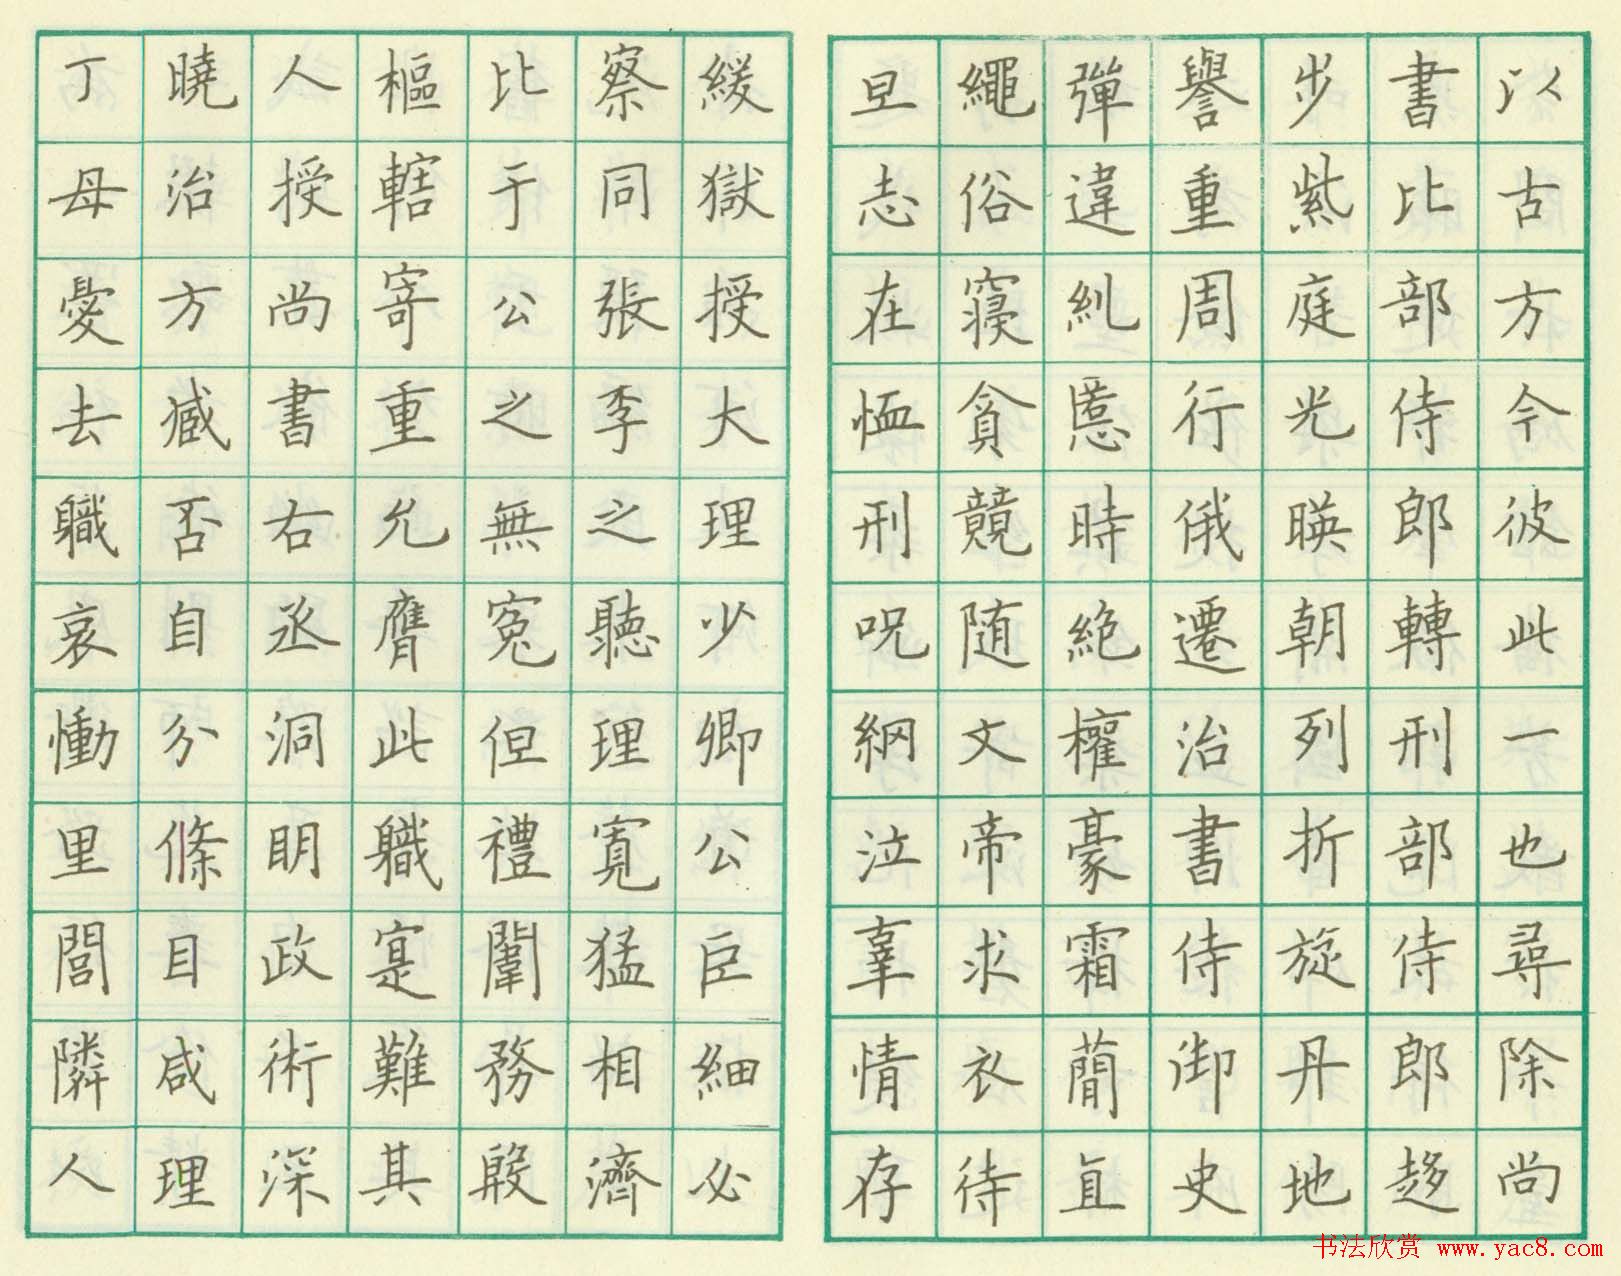 以古方今彼此一也尋除尚
書比部侍郎轉刑部侍郎趍
步紫庭光暎朝列折旋丹地
譽重周行俄遷治書侍御史
彈違糺慝時絶權豪霜簡直
繩俗寝貪競随文帝求衣待
旦志在恤刑呪網泣辜情存
緩獄授大理少卿公巨細必
察同張李之聽理寬猛相濟
比于公之無冤但禮闈務殷
樞轄寄重允膺此職寔難其
人授尚書右丞洞明政術深
曉治方臧否自分條目咸理
丁母憂去職哀慟里閭隣人
书法欣赏 www.yac8.com